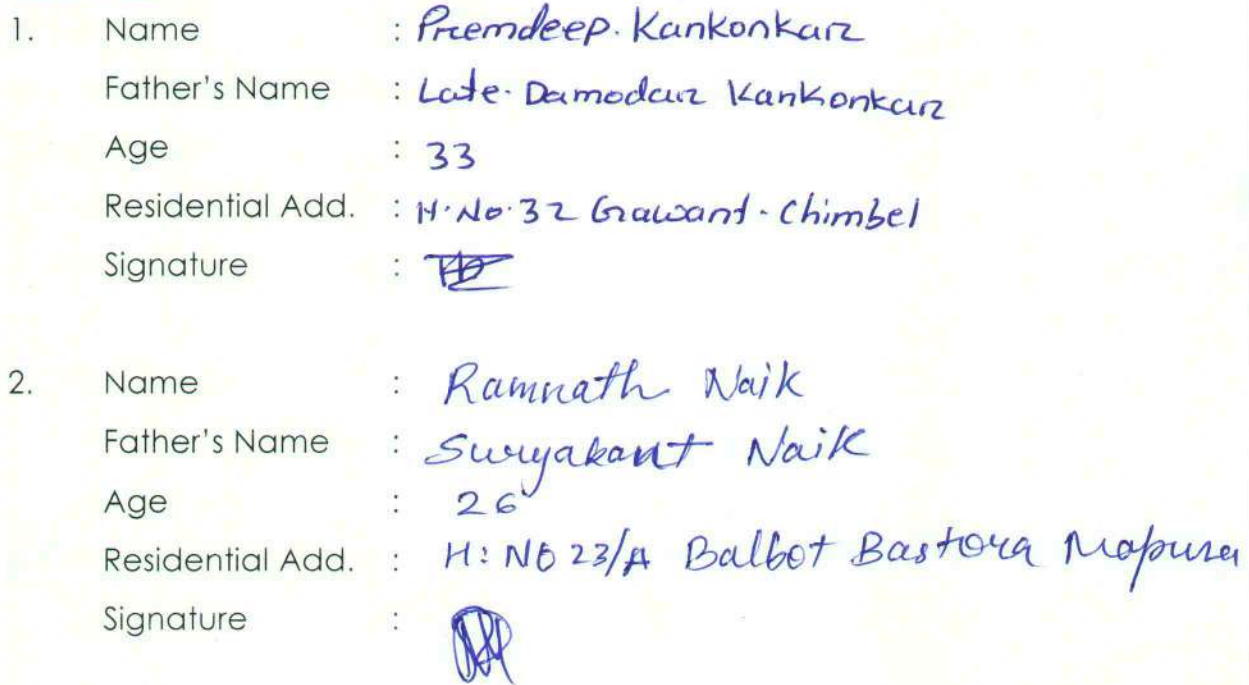 1. Name : Premdeep. Kankonkar
Father's Name : Late. Damodar Kankonkar
Age : 33
Residential Add. : H.No.32 Grawant - Chimbel
Signature :
2. Name : Ramnath Naik
Father's Name : Suryakant Naik
Age : 26
Residential Add. : H: NO 23/A Balbot Bastora Mapusa
Signature :